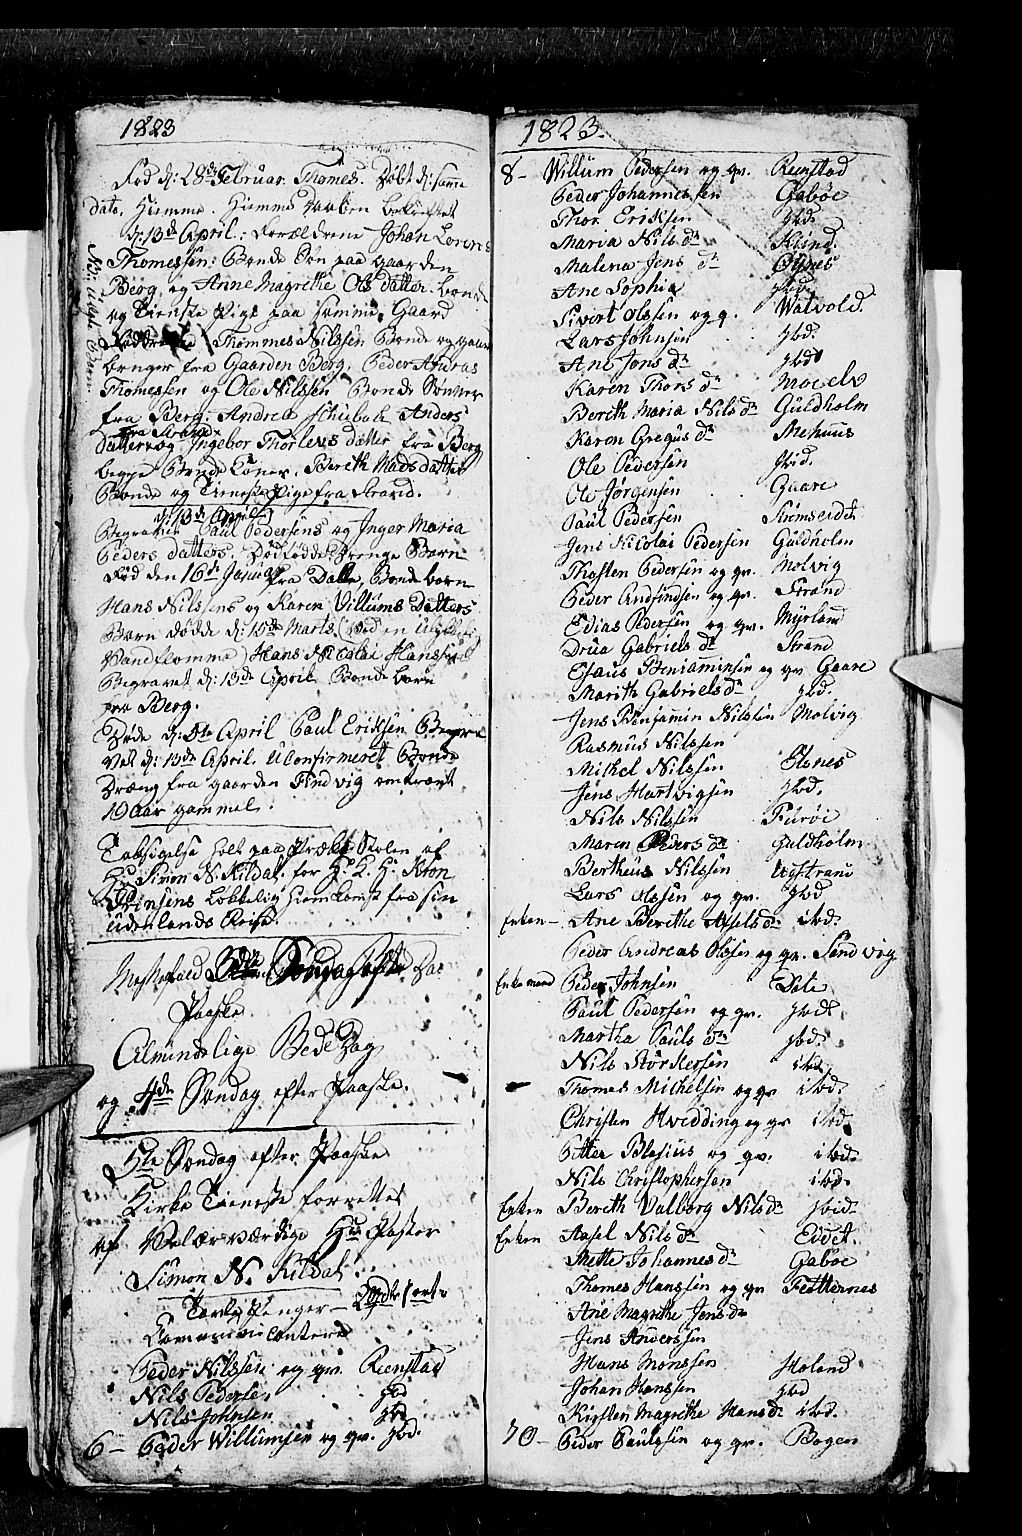 1823
Fød d: 28de Februar. Thomes. Døbt d: samme
dato. Hiemme. Hiemme Daaben bekræftet
d: 13de April: Forældrene Johan Lorens
Thomessen: Bonde Søn paa gaarden
Berg. og Anne Magrethe Ols datter. bonde
og Tieneste Pige paa samme Gaard
Thommes Nilssen Bonde og gaard
bruger fra Gaarden Berg. Peder Andras
Thomessen og Ole Nilssen Bonde Sønner
fra Berg. Andrea Anders
fra Strand
datter og Ingebor Thorlevs datter fra Berg
begge Bonde Døtter. Bereth Mads datter
Bonde og Tieneste Pige fra Strand.
d: 13de April
Begravet Paul Pedersens og Inger Maria
Peders datters. Dødfødde Drenge Barn
Fød den 16de Januar fra Dalle, Bonde barn
Hans Nilssens og Karen Villums Datters
Barn døde d: 15de Marts (ved en
Vandflomme) Hans Nicolai Hanssen
Begravet d: 13de April. Bonde barn
fra Berg.
Døde d: 5te April Paul Eriksen Begra
vet d: 13de April. Uconfirmeret Bonde
Dræng fra gaarden Findvig omtrent
19 Aar gammel.
Taksigelse holt paa Præke Stolen af
Hr: Simon N. Kildal. for H. K. H. Kron
Prinsens Løkkelig Hiemkomst fra sin
Udenlands Reise.
Messefald 3die Søndag efter
Paaske
Almindelige Bede Dag
og 4de Søndag efter Paaske.
5te Søndag efter Paaske
Kirke Tieneste forrettes
af Velærværdige Hr: Pastor
Simon N. Kildal
Tavle Penger –
Communicantere
Peder Nilssen og qv. Rienstad
Nils Peders. ibd
Nils Johnsen ibd
6 – Peder Willumsen og qv. ibd.
1823.
8 – Willum Pedersen og qv. Rienstad
Peder Johannessen Gabøe
Thor Eriksen ibd.
Maria Nils dr
Malena Jens dr Øynes
Ane Sophia ibd.
Sivert Olssen og q. Watvold.
Lars Johnsen ibd.
Ane Jons dr ibd
Karen Thors dr
Bereth Maria Nils dr Guldholm
Karen Gregus dr Mehuus
Ole Pedersen ibid.
Ole Jørgensen Gaare
Paul Pedersen Strømseidet
Jens Nicolai Pedersen Guldholm
Thosten Pedersen og qv. Molvig
Peder Andfindsen og qv. Strand
Edias Pedersen og qv. Myrland
Drua Gabriels dr Strand
Esaus Benjaminsen og qv Gaare
Marith Gabriels dr ibd.
Jens Benjamin Nilssen Molvig
Rasmus Nilssen
Mikkel Nilssen Elsnes
Jens Hartvigsen ibd.
Nils Nilssen Furøe
Maren Peders dr Guldholm
Bertheus Nilssen
Lars Olssen og qv. ibd
Enken – Ane Berethe Axels dr ibd.
Peder Andreas Olssen og qv. Sandvig
Enkemand Peder Johnsen
Paul Pedersen og qv. ibdt
Martha Pauls dr ibd.
Nils Størkersen ibd
Thomes Mickelsen og qv ibd.
Christen Hvedding og qv ibd.
Petter Blasius og qv. ibd.
Nils Christophersen ibd.
Enken Bereth Valborg Nils dr ibid.
Enken Axel Nils dr Eidet.
Mette Johannes dr Gabøe
Thomes Hanssen og qv
Ane Magrethe Jens dr
Jens Anderssen
Hans Monssen Høland
Johan Hanssen ibd
Kirsten Magrethe Hans dr ibd.
70 – Peder Paulssen og qv. Bogen